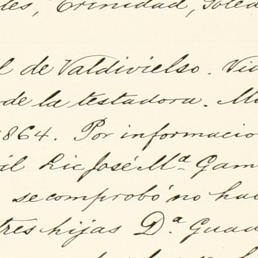 les, Trinidad, Soled
l de Valdivielso. Viu
de la testadora. M
1864. Por informacio
il Lic José Mª Gam
se comprobó no ha
tres hijas Dª Guad